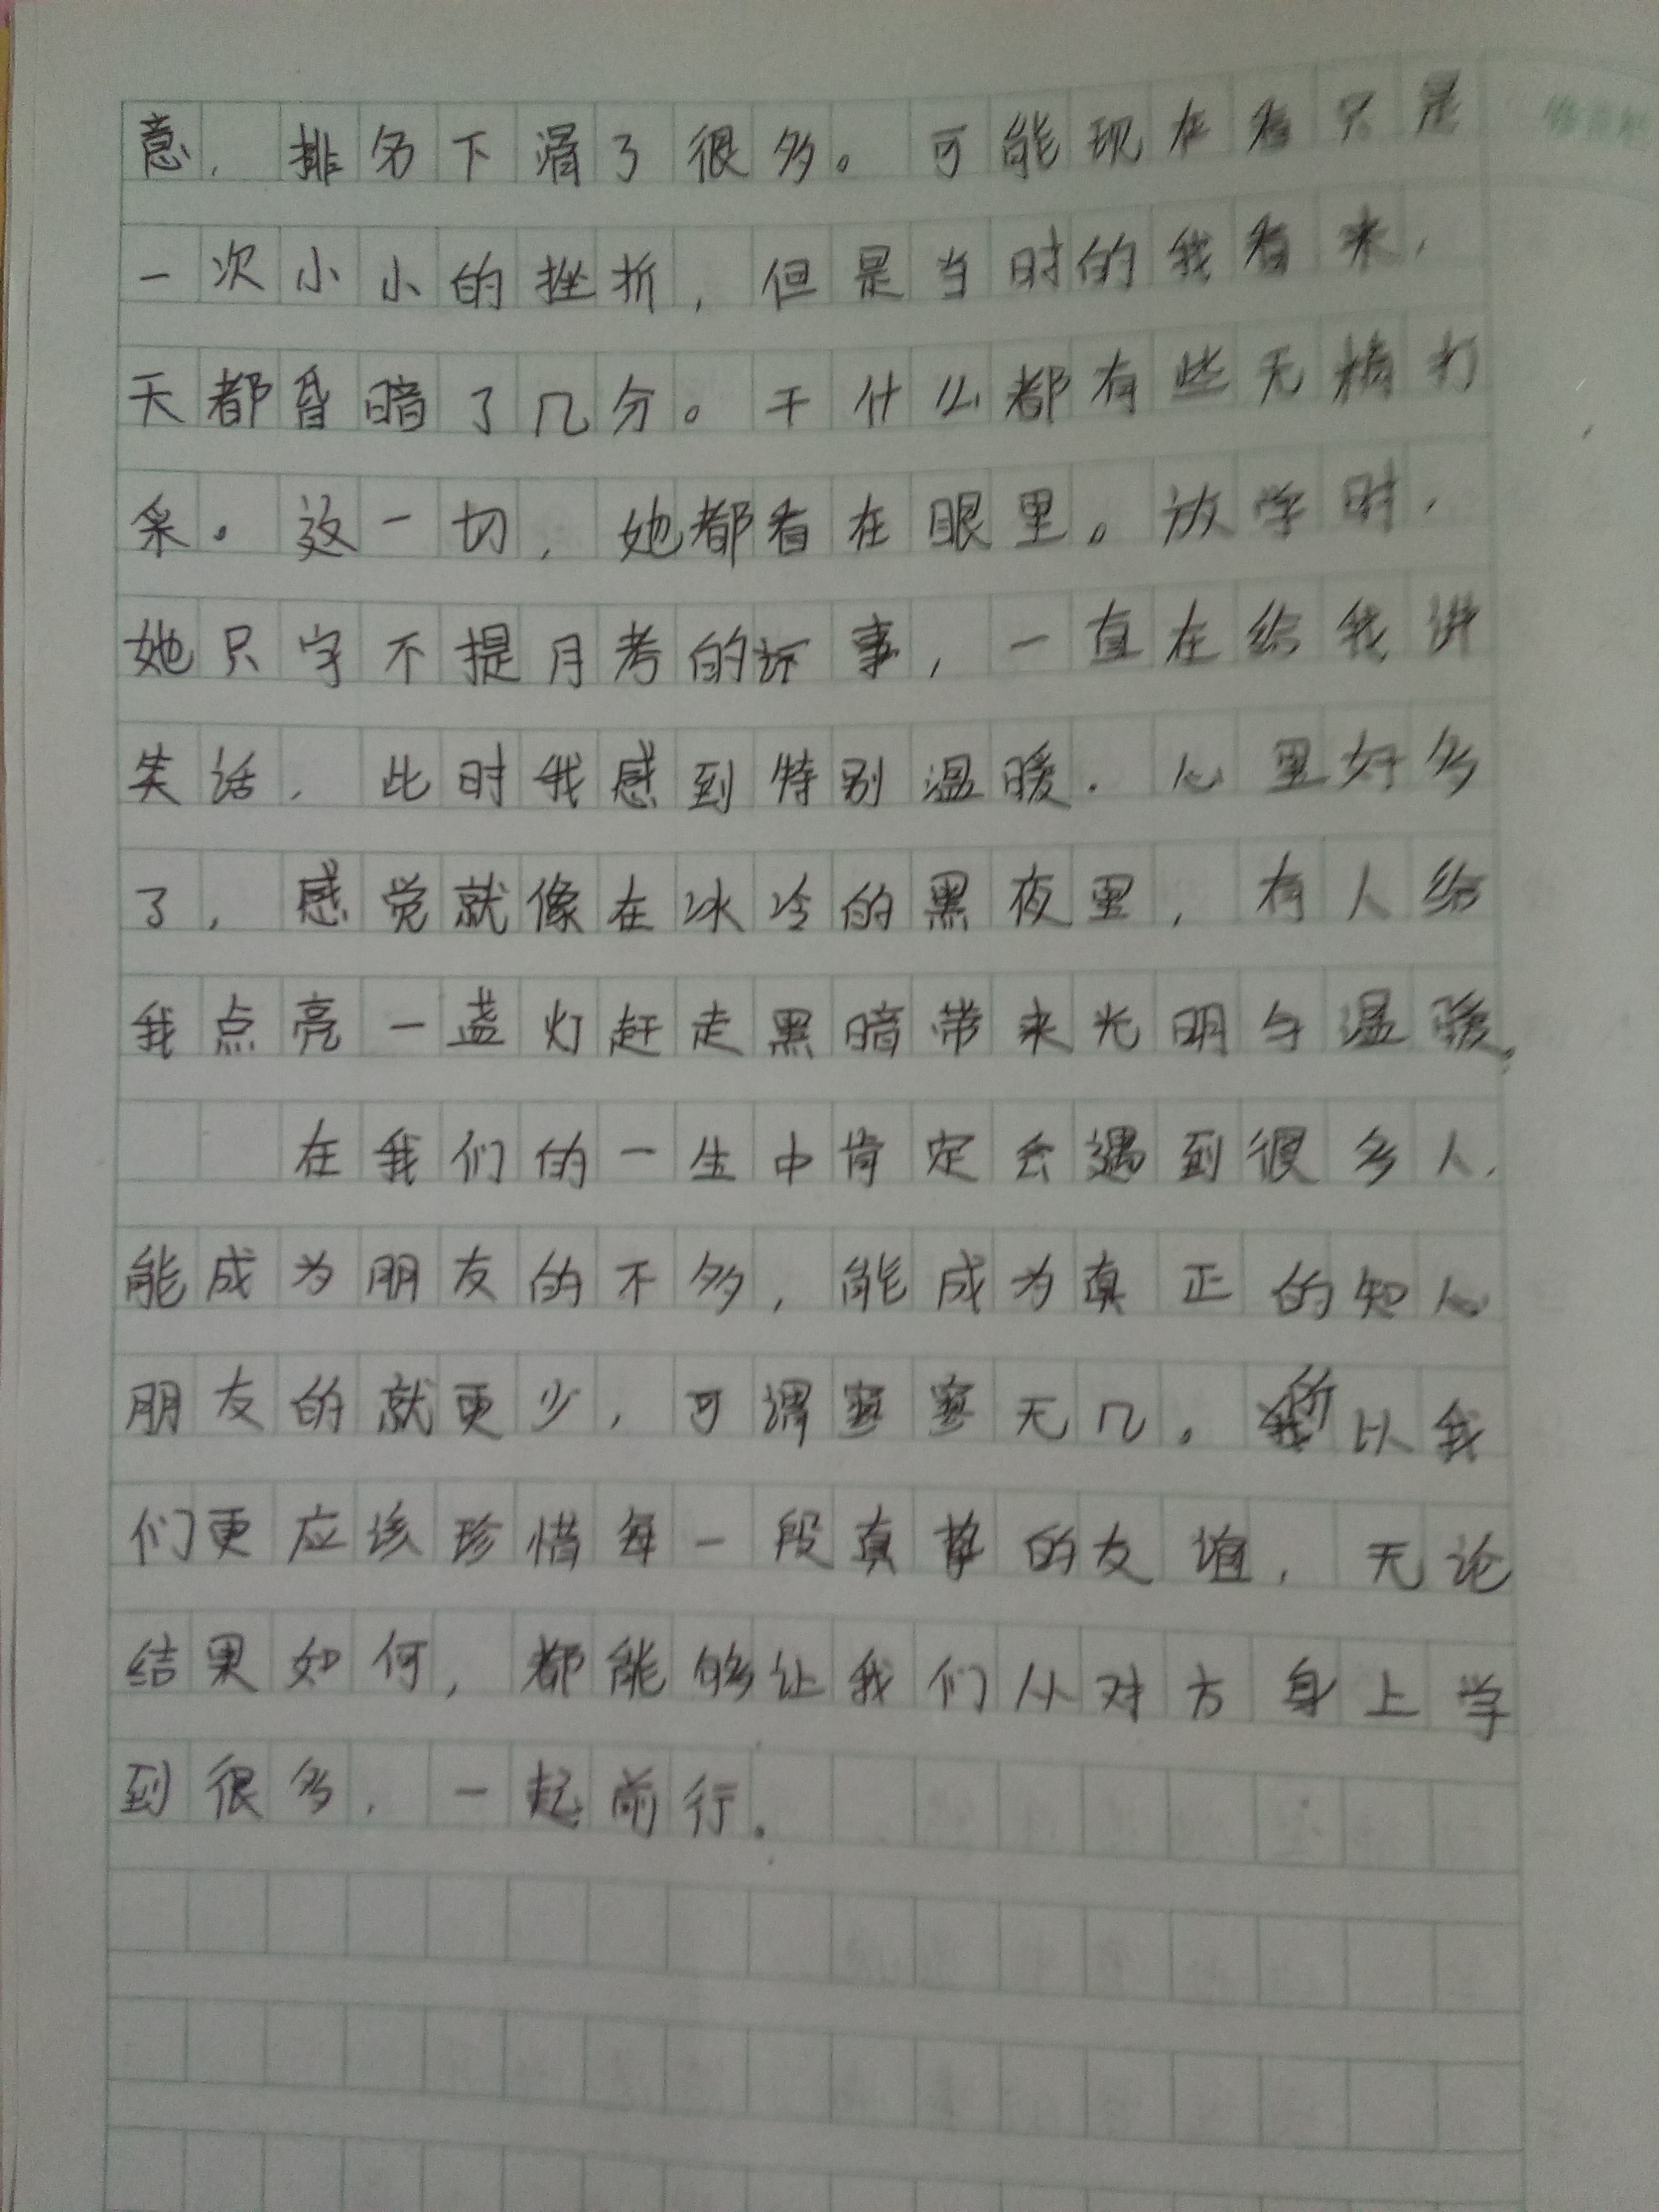 意，排名下滑了很多。可能现在看只是
一次小小的挫折，但是当时的我看来，
天都昏暗了几分。干什么都有些无精打
采。这一切，她都看在眼里。放学时，
她只字不提月考的坏事，一直在给我讲
笑话，此时我感到特别温暖.心里好多
了，感觉就像在冰冷的黑夜里，有人给
我点亮一盏灯赶走黑暗带来光明与温暖。
在我们的一生中肯定会遇到很多人，
能成为朋友的不多，能成为真正的知心
朋友的就更少，可谓寥寥无几。所以我
们更应该珍惜每一段真挚的友谊，无论
结果如何，都能够让我们从对方身上学
到很多，一起前行。